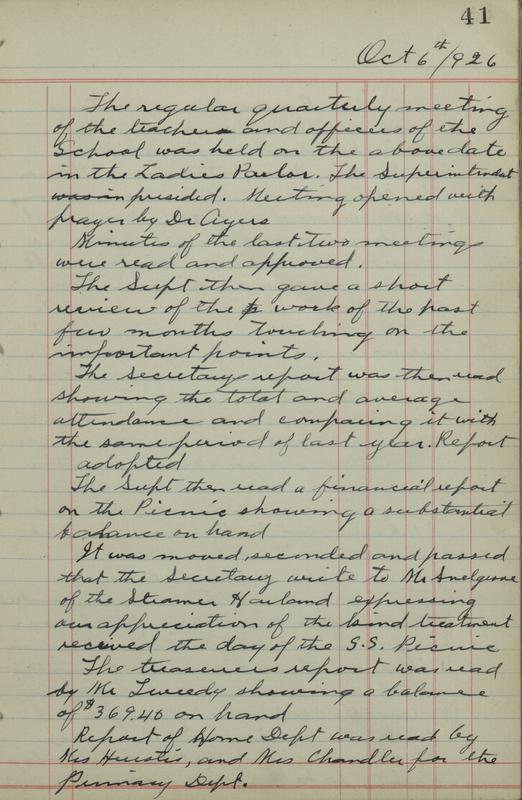 41
Oct 6th/926
The regular quarterly meeting
of the teachers and officers of the
School was held on the above date
in the Ladies Parlor. The Superintendent
was in presided. Meeting opened with
prayer by Dr Ayers
Minutes of the last two meetings
were read and approved.
The Supt then gave a short
review of the work of the past
few months touching on the
important points.
The secretarys report was then read
showing the total and average
attendance and comparing it with
the same period of last year. Report
adopted
The Supt then read a financial report
on the Picnic showing a substantial
balance on hand
It was moved, seconded and passed
that the Secretary write to Mr Snelgrove
of the Steamer Harland expressing
our appreciation of the kind treatment
received the day of the S.S. Picnic
The treasurers report was read
by Mr Tweedy showing a balance
of $369.40 on hand
Report of Home Dept was read by
Mrs Huestis, and Mrs Chandler for the
Primary Dept.